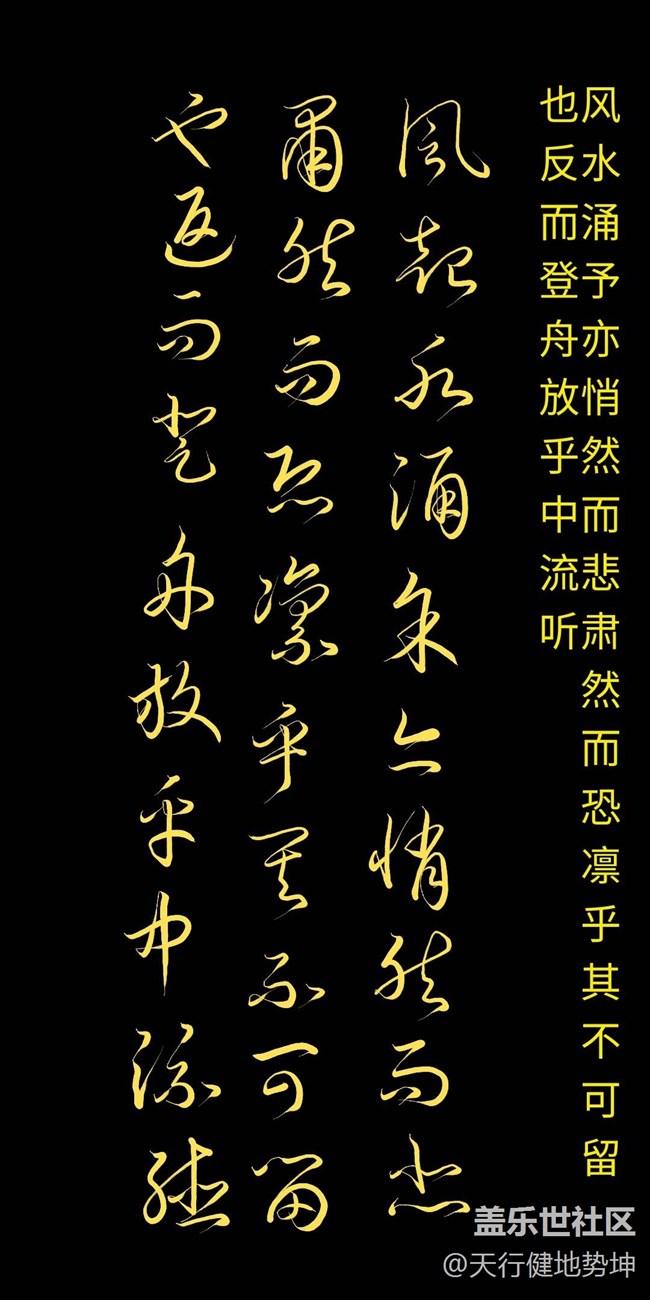 风水涌予亦悄然而悲肃然而恐凛乎其不可留
也反而登舟放乎中流听
風起水涌余亦悄然而悲
肅然而恐凛乎其不可留
也返而登舟放乎中流聽
盖乐世社区
@天行健地势坤